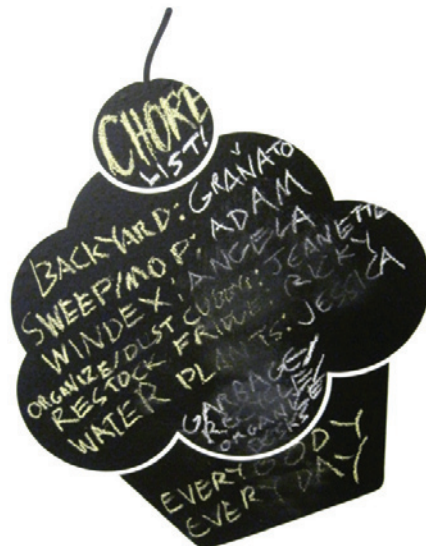 CHORE
LIST!
BACKYARD: GRANATO
SWEEP/MOP: ADAM
WINDEX: ANGELA
ORGANIZE/DUST CUBBYS: JEANETTE
RESTOCK FRIDGE: RICKY
WATER PLANTS: JESSICA
GARBAGE/
RECYCLE/
ORGANIZE
DESKS
EVERYBODY
EVERY DAY